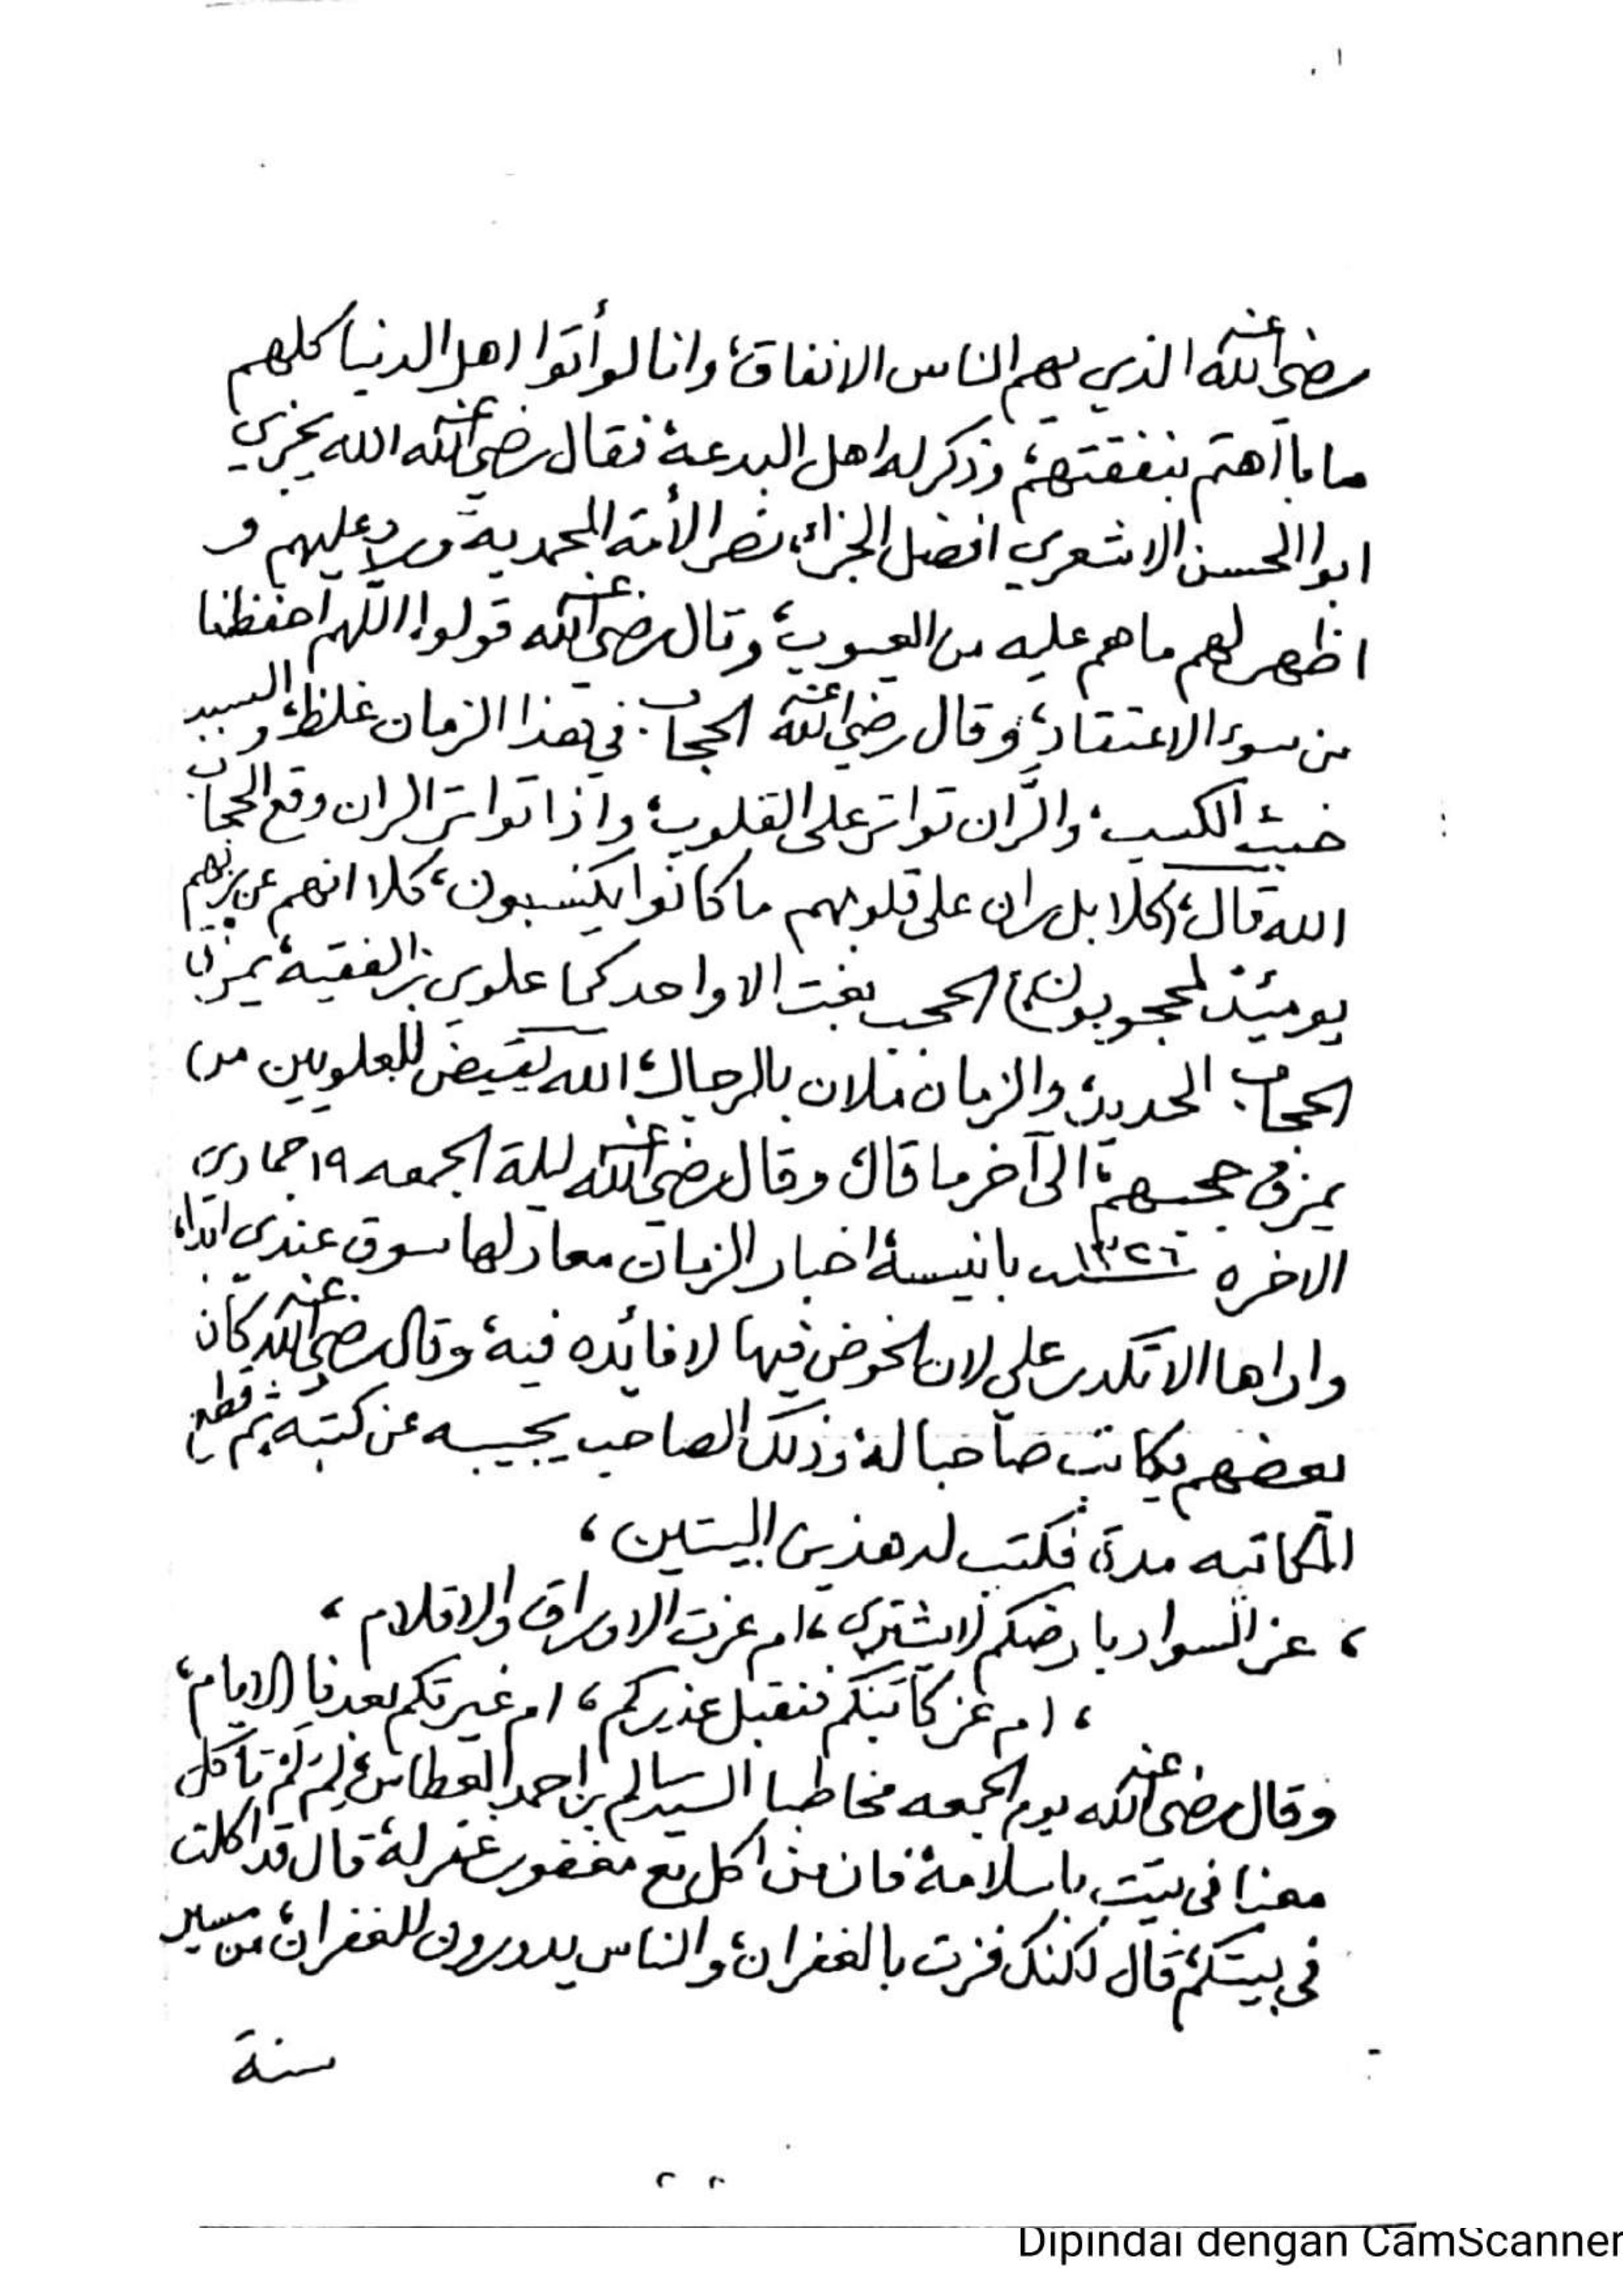 رضي الله عنه الذي يهم الناس الانفاق، وانا لو أتوا اهل الدنيا كلهم
ما باأهتم بنفقتهم، وذكر له اهل البدعة فقال رضي الله عنه الله يجزي
ابوا الحسن الاشعري افضل الجزاء، نصر الأمة المحمدية ورد عليهم و
اظهر لهم ما هم عليه من العيوب، وقال رضي الله عنه قولوا اللهم احفظنا
من سوء الاعتقاد، وقال رضي الله عنه الحجاب في هذا الزمان غلظ، والسبب
خبث الكسب، والرَّان تواتر على القلوب، واذا تواتر الران وقع الحجاب
الله قال، (كلا بل ران على قلوبهم ما كانوا يكسبون، كلا انهم عن ربهم
يومئذ لمحجوبون) الحجب بغت الا واحد كما علوي بن الفقيه، يمزق
الحجاب الحديد، والزمان ملان بالرجال، الله يقيض للعلويين من
يمزق حجبهم، الى آخر ما قال، وقال رضي الله عنه ليلة الجمعه ١٩ جمادى
الاخره سنة ١٣٢٦ بانيسة اخبار الزمان معاد لها سوق عندي ابدا،
واراها الا تكدر علي لان الخوض فيها لا فائده فيه، وقال رضي الله عنه كان
بعضهم يكاتب صاحبا له، وذلك الصاحب يجيبه عن كتبه ثم قطع
المكاتبه مدة، فكتب له هذين البيتين،
، عز السواد بارضكم لا يشترى، ام عزت الاوراق والاقلام،
، ام عز كاتبكم فنقبل عذركم، ام غيرتكم بعدنا الايام،
وقال رضي الله عنه يوم الجمعه مخاطبا السيد سالم بن احمد العطاس، لم لم تأكل
معنا في بيت باسلامة فان من اكل مع مغفور غفر له، قال قد اكلت
في بيتكم، قال لكنك فزت بالغفران، والناس يدورون للغفران، من مسير
سنة
٢٢
Dipindai dengan CamScanner